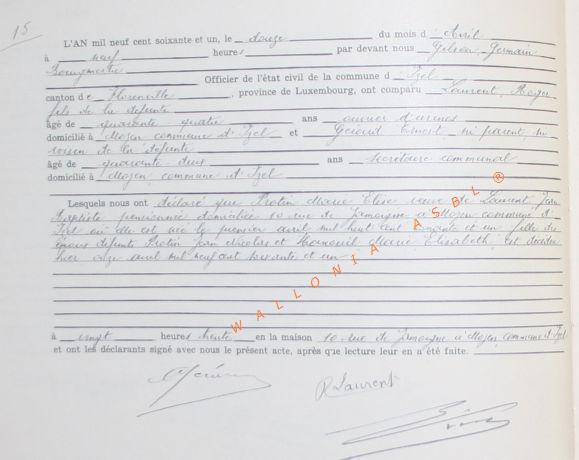 15
L'AN mil neuf cent soixante et un, le douze du mois d'Avril
à neuf heures par devant nous Gilson Germain
Bourgmestre Officier de l'état civil de la commune d'Izel
canton de Florenville, province de Luxembourg, ont comparu Laurent, Roger
fils de la défunte
âgé de quarante quatre ans ouvrier d'usines
domicilié à Moyen commune d'Izel et Gérard Ernest, ni parent, ni
voisin de la défunte
âgé de quarante deux ans secrétaire communal
domicilié à Moyen, commune d'Izel
Lesquels nous ont déclaré que Protin Marie Elise veuve de Laurent, Jean
Baptiste pensionnée domiciliée 10 rue de à Moyen commune d'
Izel où elle est née le premier avril mil huit cent et un fille des
époux défunts Protin Jean Nicolas et Marie Elisabeth, est décédée
hier onze avril mil neuf cent soixante et un
WALLONIA ASBL ®
à vingt heures trente en la maison 10 rue de à Moyen, commune d'Izel
et ont les déclarants signé avec nous le présent acte, après que lecture leur en a été faite.
R Laurent